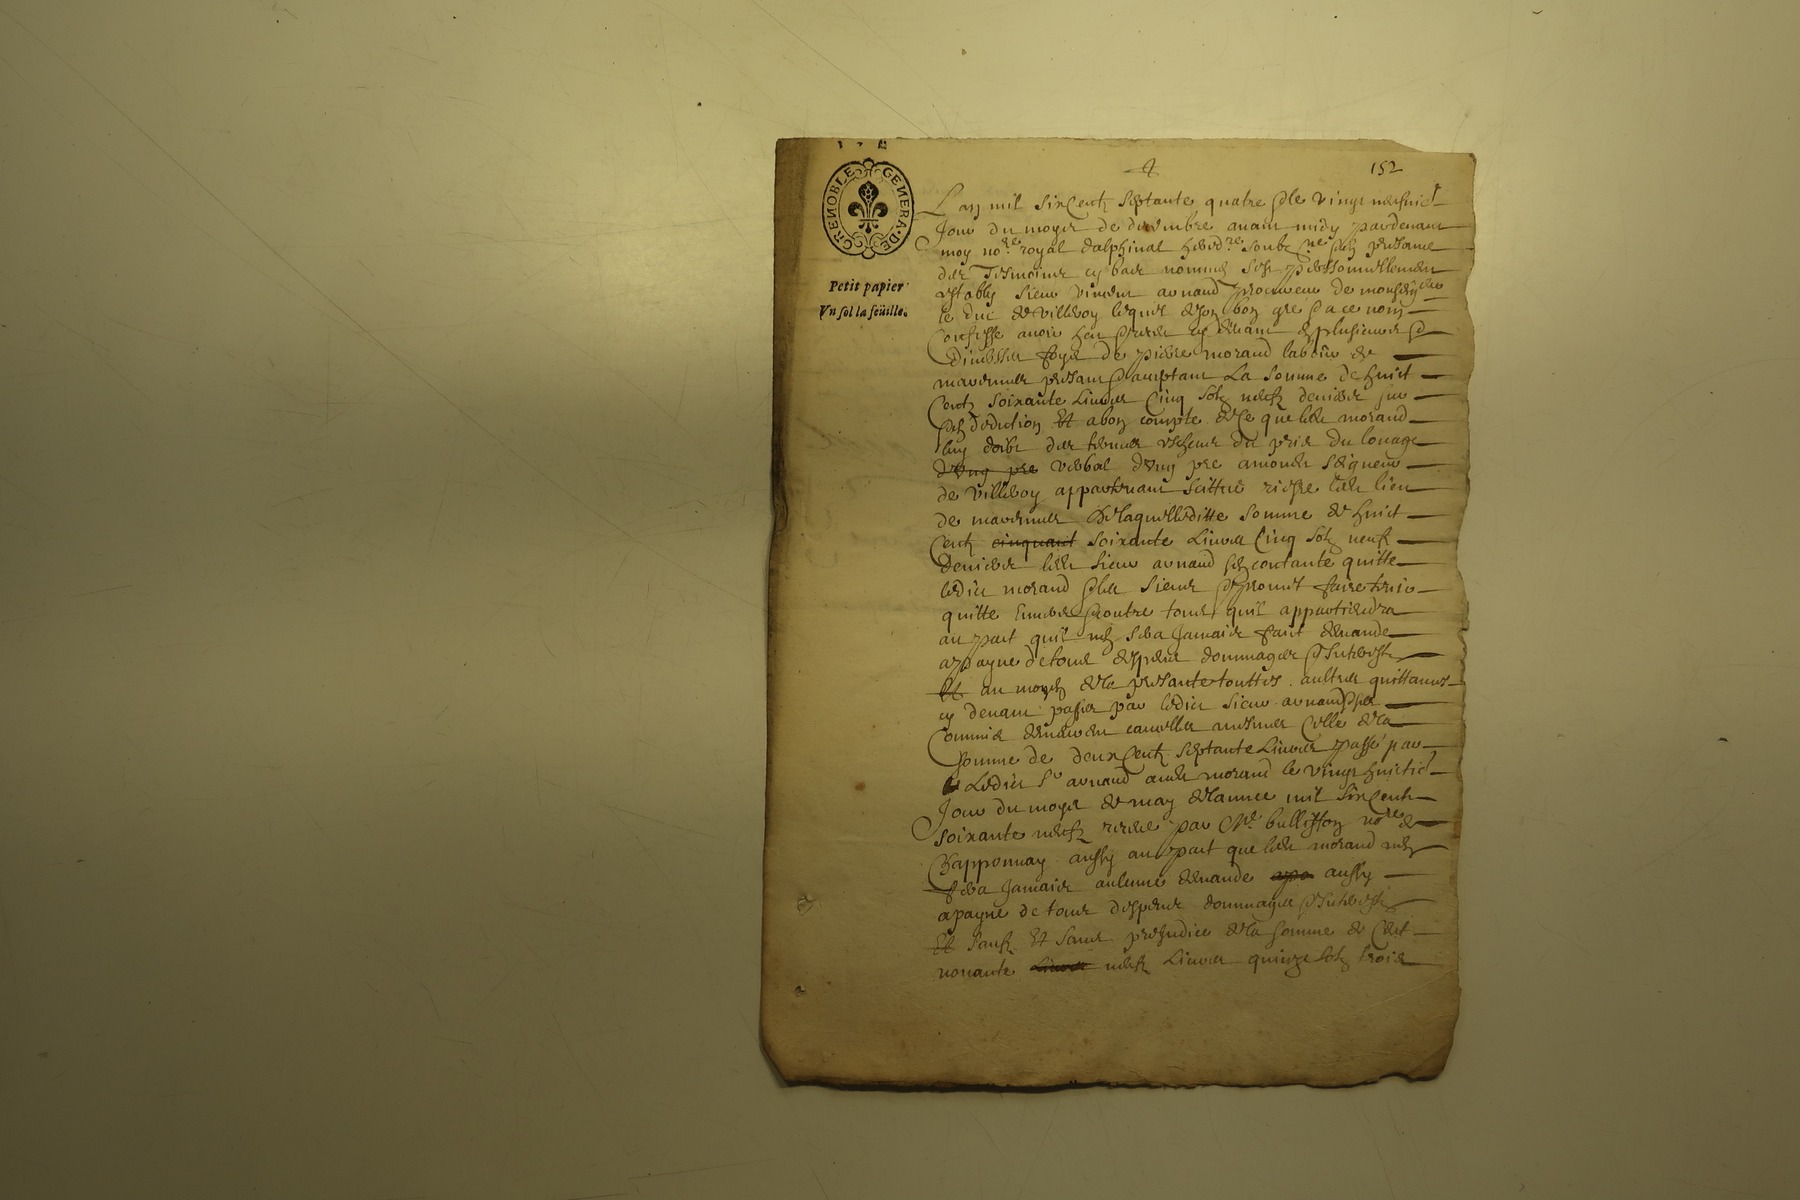 GRENOBLE GENERA. DE
Petit papier
Vn sol la feüille.
152
L an mil six Cents septante quatre & le vingt neufuiet
Jour du moys de decembre auant midy pardeuant
moy no.re royal dalphinal hered.re soubz.ne & presance
des Tesmoins cy bas nommés sest personnellement
estably sieur vincent arnaud procureur de monseig.r
le Duc de Villeroy lequel de son bon gré & a ce nom
Confesse auoir heu & receu cy deuant en plusieurs &
diuerses foys de pierre morand labour de
marennes presant & acceptant La somme de huict
Cents soixante Liures Cinq solz neufz deniers sur
& deduction Et a bon compte de ce que led morand
luy doibt des termes escheus du prix du louage
d'vng pre verbal d'vng pre a mondit seigneur
de Villeroy appartenant scittué riere led lieu
de marennes De laquelle ditte somme de huict
Cents cinquant soixante Liures Cinq solz neufz
deniers led sieur arnaud contante quitte
ledict morand & les siens & promet faire tenir
quitte Enuers & contre tous quil appartiendra
au pact quil nen sera Jamais faict demande
a payne de tous despens dommages & Interestz
Et au moyen de la presante touttes aultres quittances
cy deuant passées par ledict sieur arnaud
Commis demeurent cancellés mesmes Celle de la
somme de deux Cents septante Liures passé par
Ledict S.r arnaud aud morand le vingt huictie
Jour du moys de may de lannee mil six Cents
soixante neufz receue par M.e bullisson no.re de
Chapponnay aussy au pact que led morand nen
fera Jamais aulcune demande apa aussy
a payne de tous despens dommages & Interestz
Et sauf Et sans preiudice de la somme de Cent
nonante Liures neufz Liures quinze solz trois